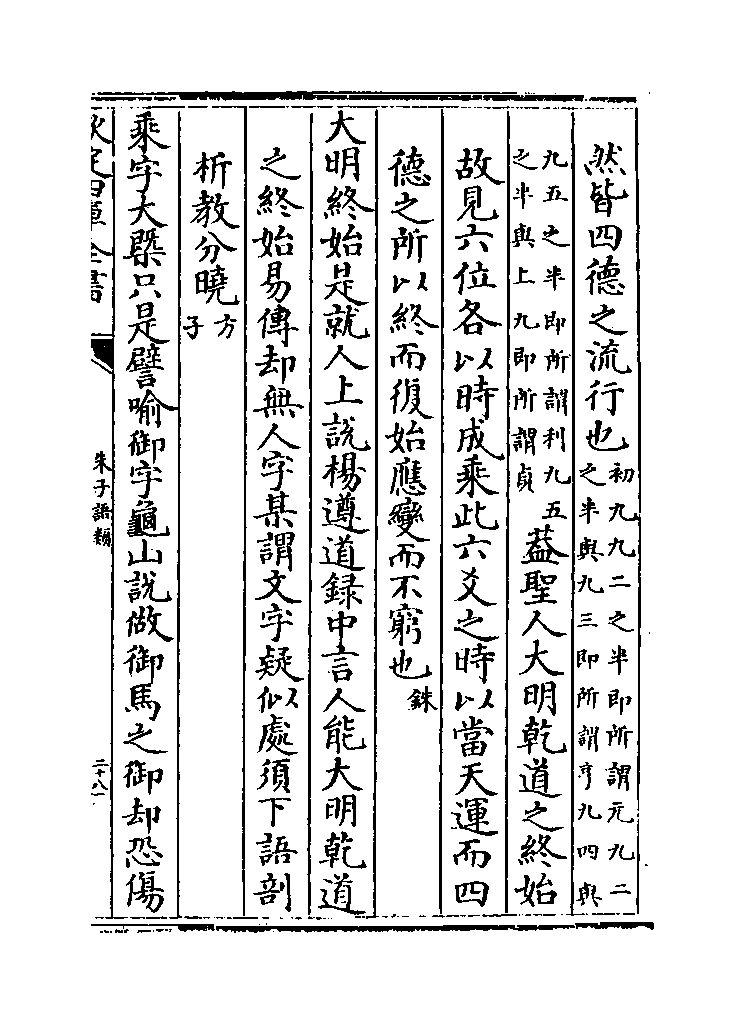 然皆四德之流行也初九九二之半即所謂元九二之半與九三即所謂亨九四與
九五之半即所謂利九五之半與上九即所謂貞葢聖人大明乾道之終始
故見六位各以時成乘此六爻之時以當天運而四
德之所以終而復始應變而不窮也銖
大明終始是就人上說楊遵道録中言人能大明乾道
之終始易傳却無人字某謂文字疑似處須下語剖
析教分曉方子
乘字大槩只是譬喻御字龜山說做御馬之御却恐傷
欽定四庫全書
朱子語類
二十八